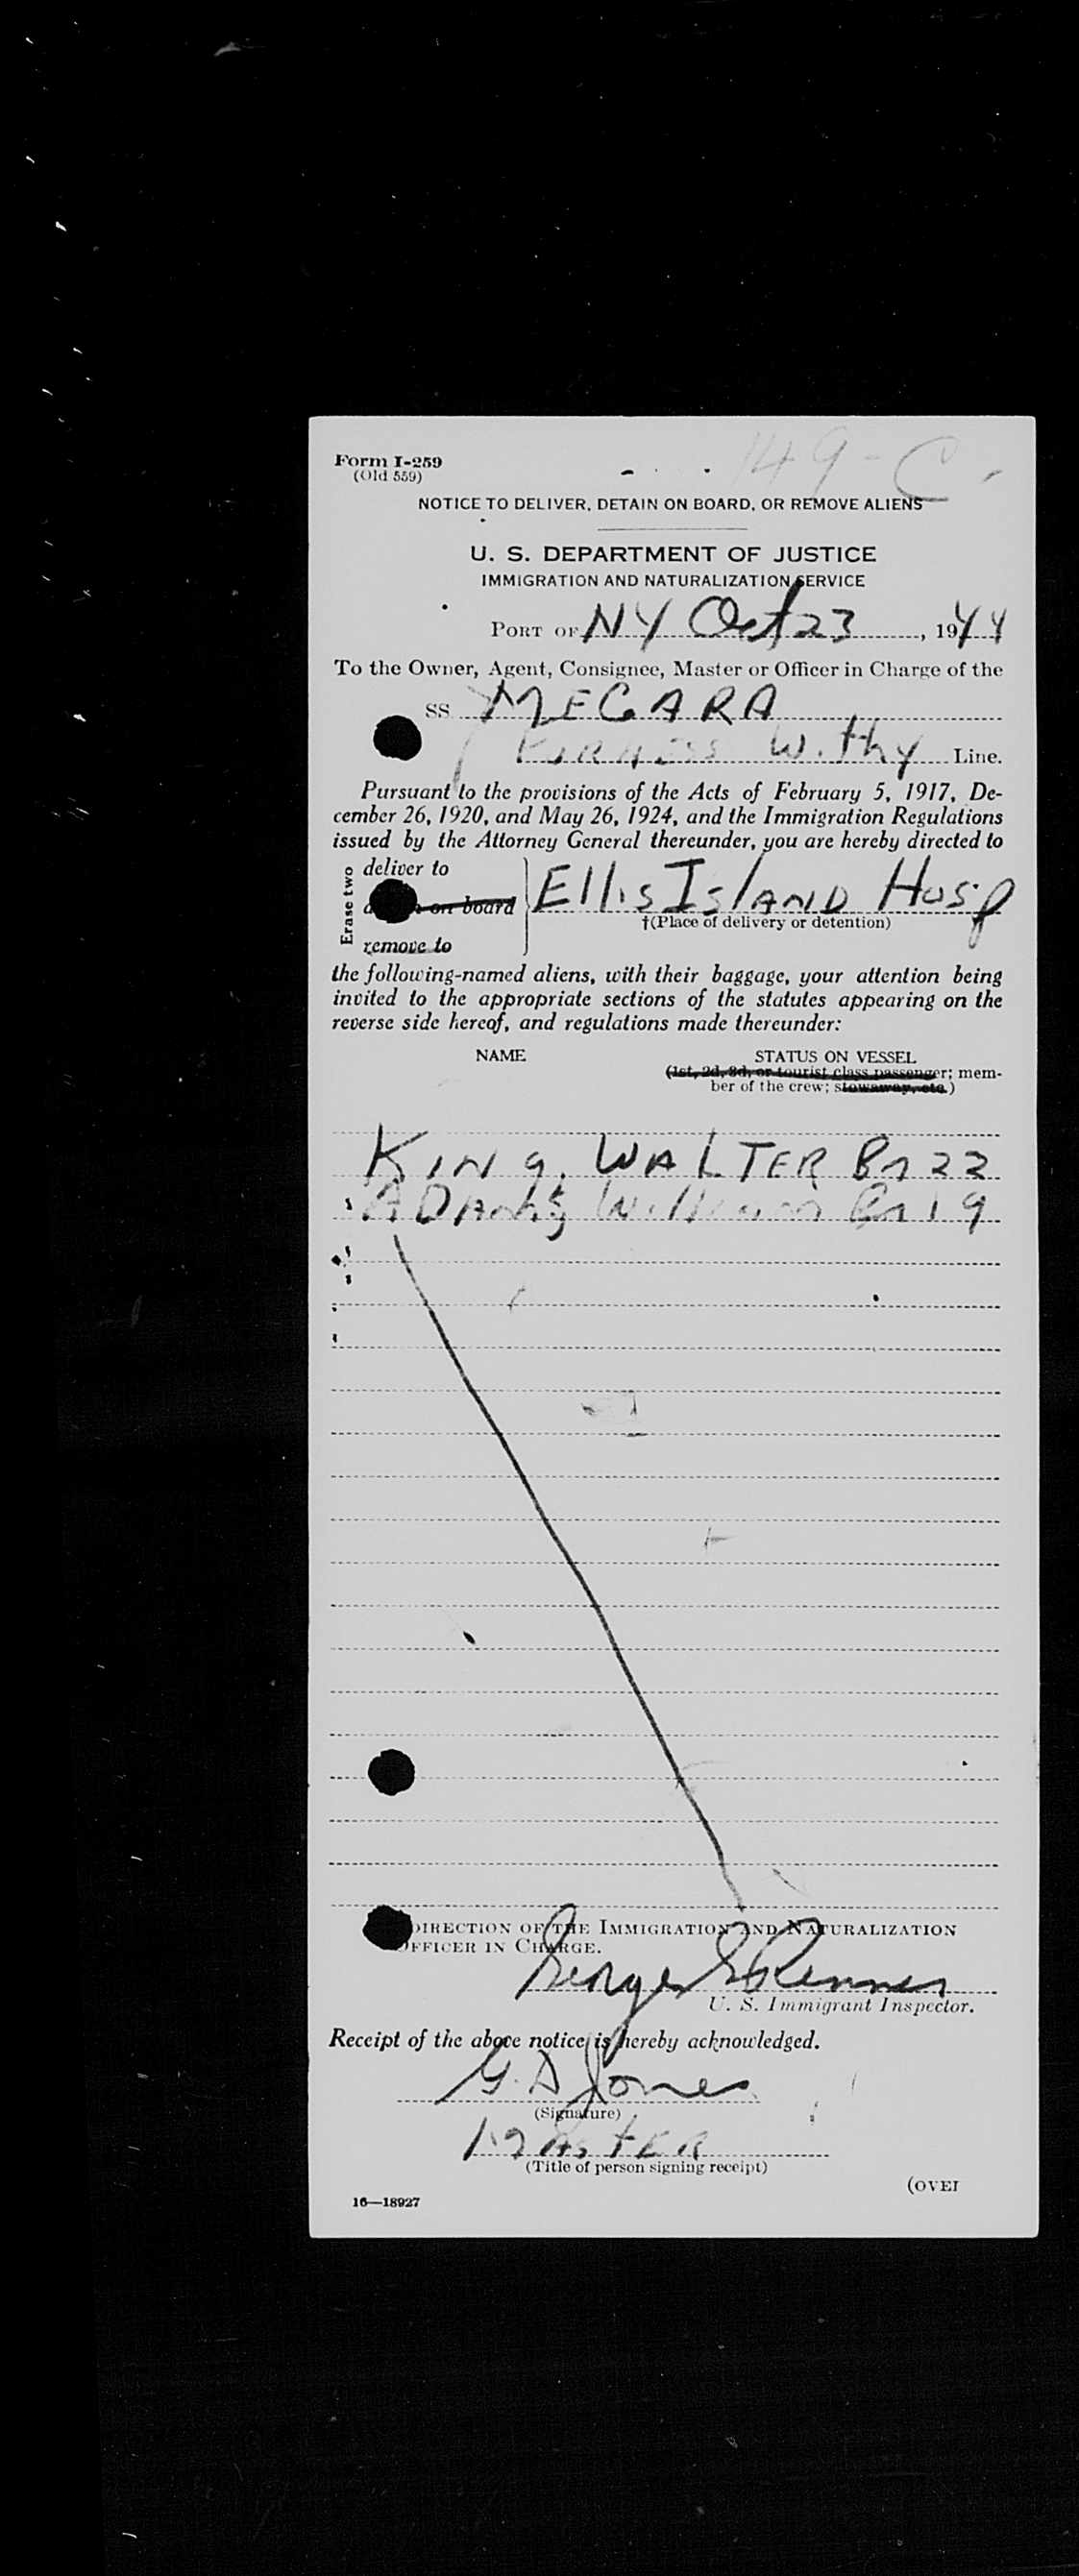 149-C
Form I-259
(Old 559)
NOTICE TO DELIVER, DETAIN ON BOARD, OR REMOVE ALIENS
U. S. DEPARTMENT OF JUSTICE
IMMIGRATION AND NATURALIZATION SERVICE
PORT OF NY Oct 23, 1944
To the Owner, Agent, Consignee, Master or Officer in Charge of the
SS MEGARA
Furness Withy Line.
Pursuant to the provisions of the Acts of February 5, 1917, De-
cember 26, 1920, and May 26, 1924, and the Immigration Regulations
issued by the Attorney General thereunder, you are hereby directed to
Erase two
deliver to
on board
remove to
Ellis Island Hosp
†(Place of delivery or detention)
the following-named aliens, with their baggage, your attention being
invited to the appropriate sections of the statutes appearing on the
reverse side hereof, and regulations made thereunder:
NAME STATUS ON VESSEL
(1st, 2d, 3d, or tourist class passenger; mem-
ber of the crew; stowaway, etc.)
KING, WALTER Br 22
ADAMS, William Br 19
DIRECTION OF THE IMMIGRATION AND NATURALIZATION
OFFICER IN CHARGE.
George
U. S. Immigrant Inspector.
Receipt of the above notice is hereby acknowledged.
G. D Jones
(Signature)
MASTER
(Title of person signing receipt)
(OVER
16—18927